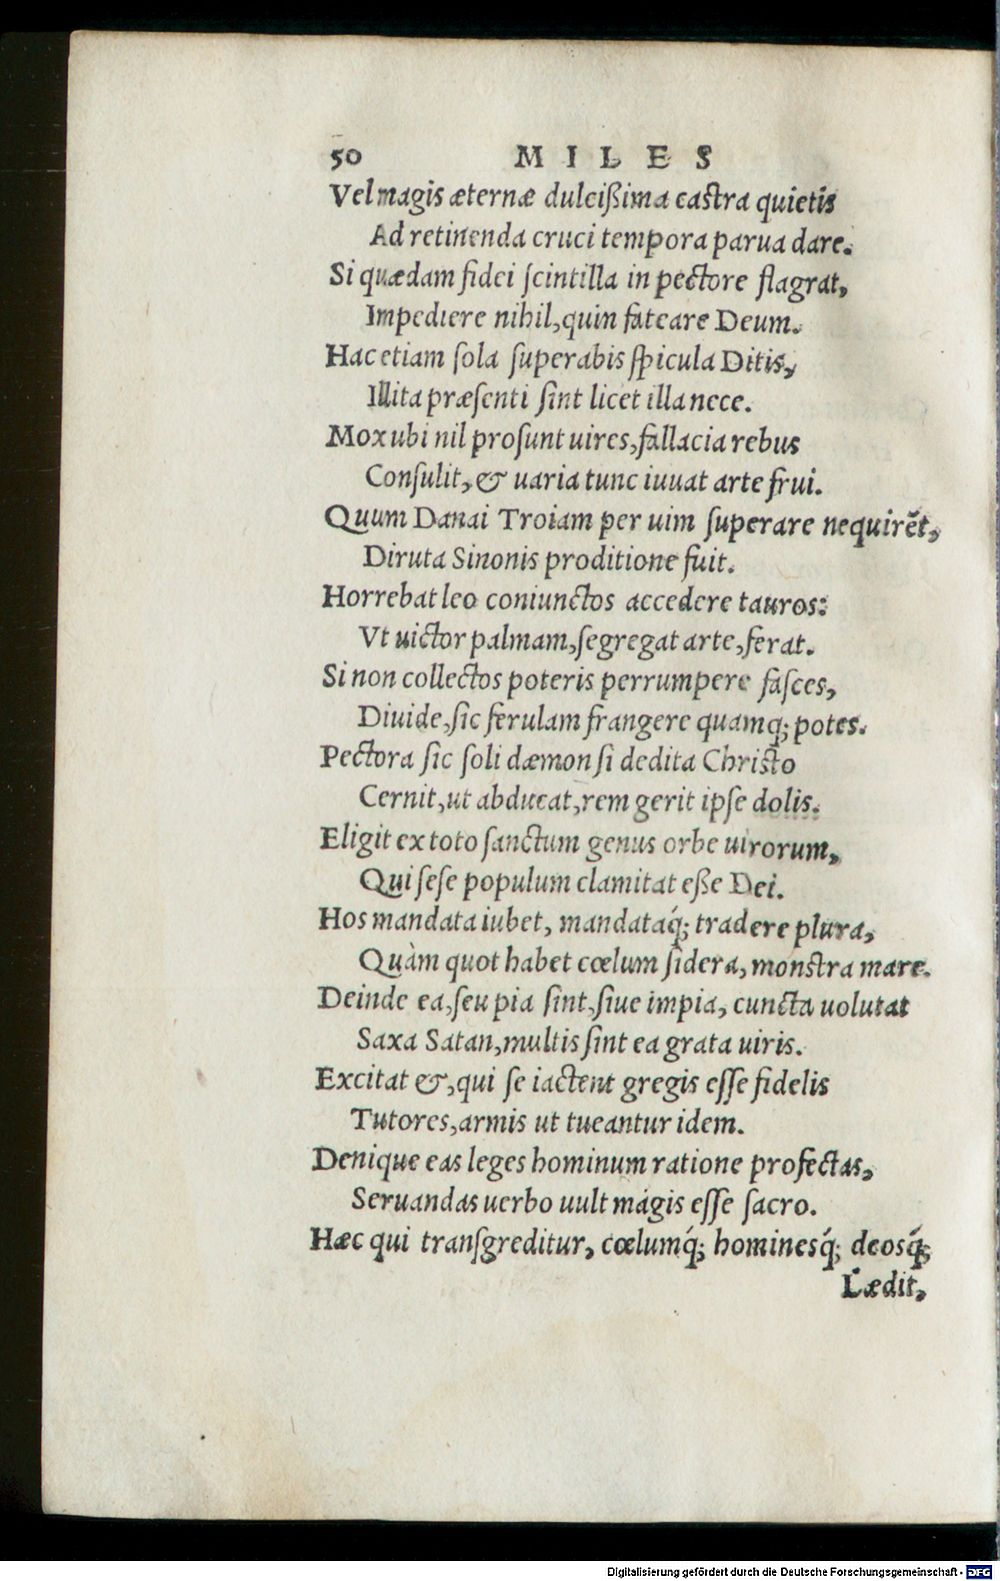 50 MILES
Vel magis æternæ dulcißima castra quietis
Ad retinenda cruci tempora parua dare.
Si quædam fidei ſcintilla in pectore flagrat,
Impediere nihil, quin fateare Deum.
Hac etiam ſola ſuperabis ſpicula Ditis,
Illita præſenti ſint licet illa nece.
Mox ubi nil proſunt uires, fallacia rebus
Conſulit, & uaria tunc iuuat arte frui.
Quum Danai Troiam per uim ſuperare nequirēt,
Diruta Sinonis proditione fuit.
Horrebat leo coniunctos accedere tauros:
Vt uictor palmam, ſegregat arte, ferat.
Si non collectos poteris perrumpere faſces,
Diuide, ſic ferulam frangere quamq; potes.
Pectora ſic ſoli dæmon ſi dedita Chriſto
Cernit, ut abducat, rem gerit ipſe dolis.
Eligit ex toto ſanctum genus orbe uirorum,
Qui ſeſe populum clamitat eße Dei.
Hos mandata iubet, mandataq́; tradere plura,
Quàm quot habet cœlum ſidera, monſtra mare.
Deinde ea, ſeu pia ſint, ſiue impia, cuncta uolutat
Saxa Satan, multis ſint ea grata uiris.
Excitat &, qui ſe iactent gregis eſſe fidelis
Tutores, armis ut tueantur idem.
Denique eas leges hominum ratione profectas,
Seruandas uerbo uult magis eſſe ſacro.
Hæc qui tranſgreditur, cœlumq́; hominesq́; deosq́;
Lædit,
Digitalisierung gefördert durch die Deutsche Forschungsgemeinschaft - DFG